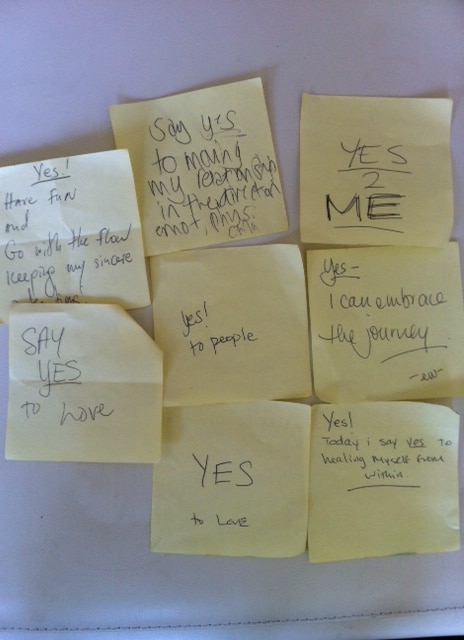 Yes!
Have fun
and
Go with the flow
keeping my sincere
Say yes
to
my relationship
in the direction
YES
2
ME
yes!
to people
Yes-
I can embrace
the journey.
-ew-
SAY
YES
to Love
YES
to Love
Yes!
Today i say yes to
healing myself from
within.